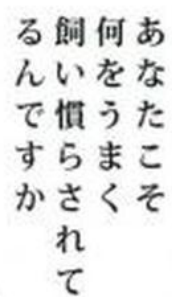 あなたこそ
何をうまく
飼い慣らされて
るんですか